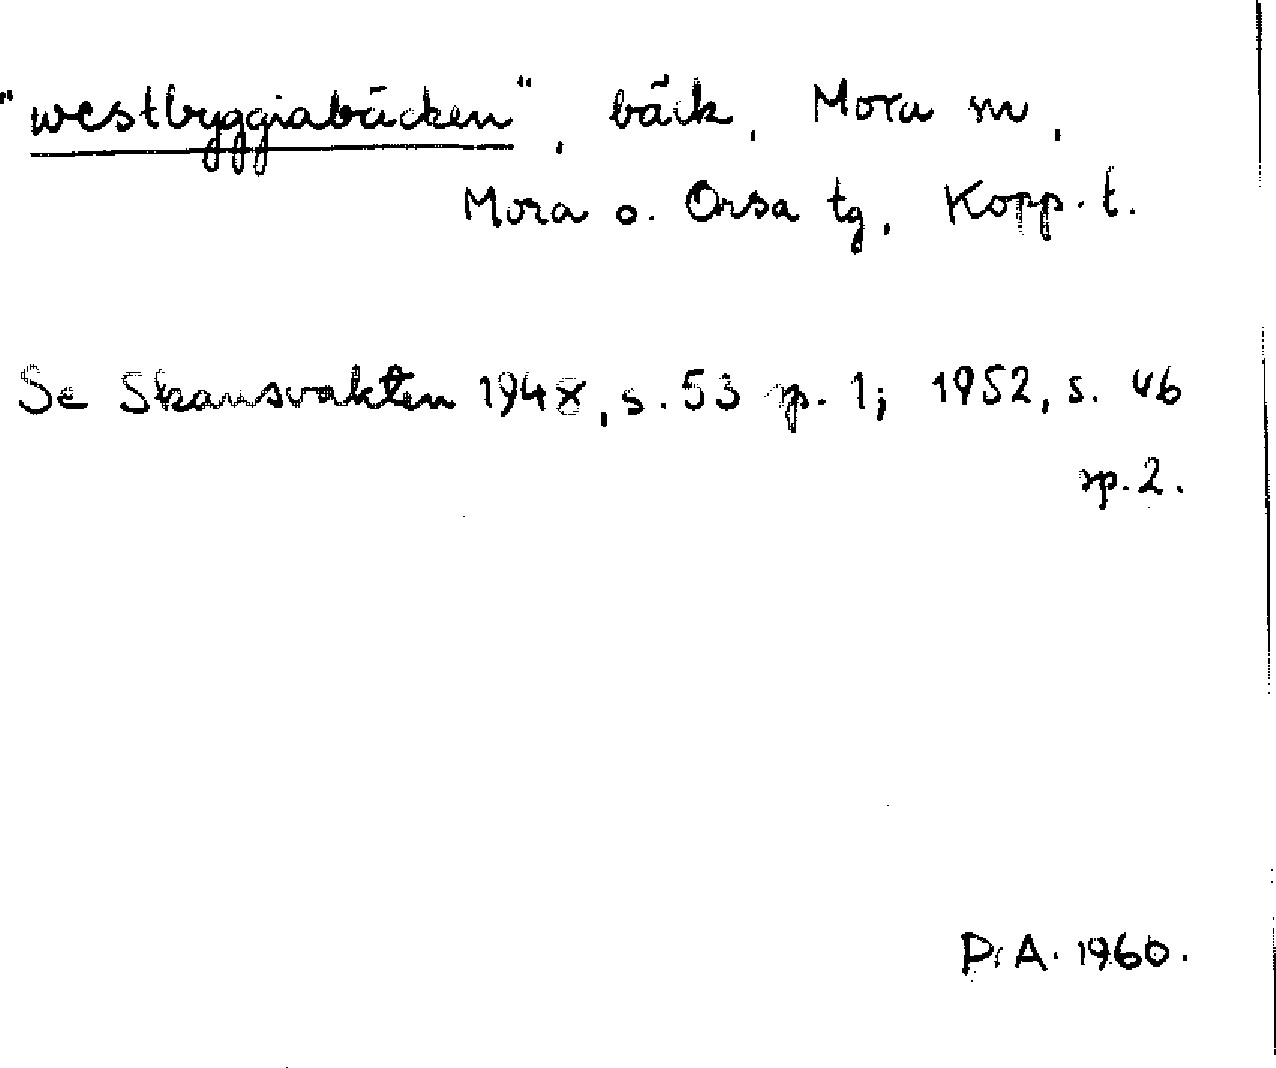 "westbyggiabäcken", bäck, Mora sn,
Mora o. Orsa tg, Kopp. l.
Se Skansvakten 1948, s. 53 sp. 1; 1952, s. 46
sp. 2.
D. A. 1960.